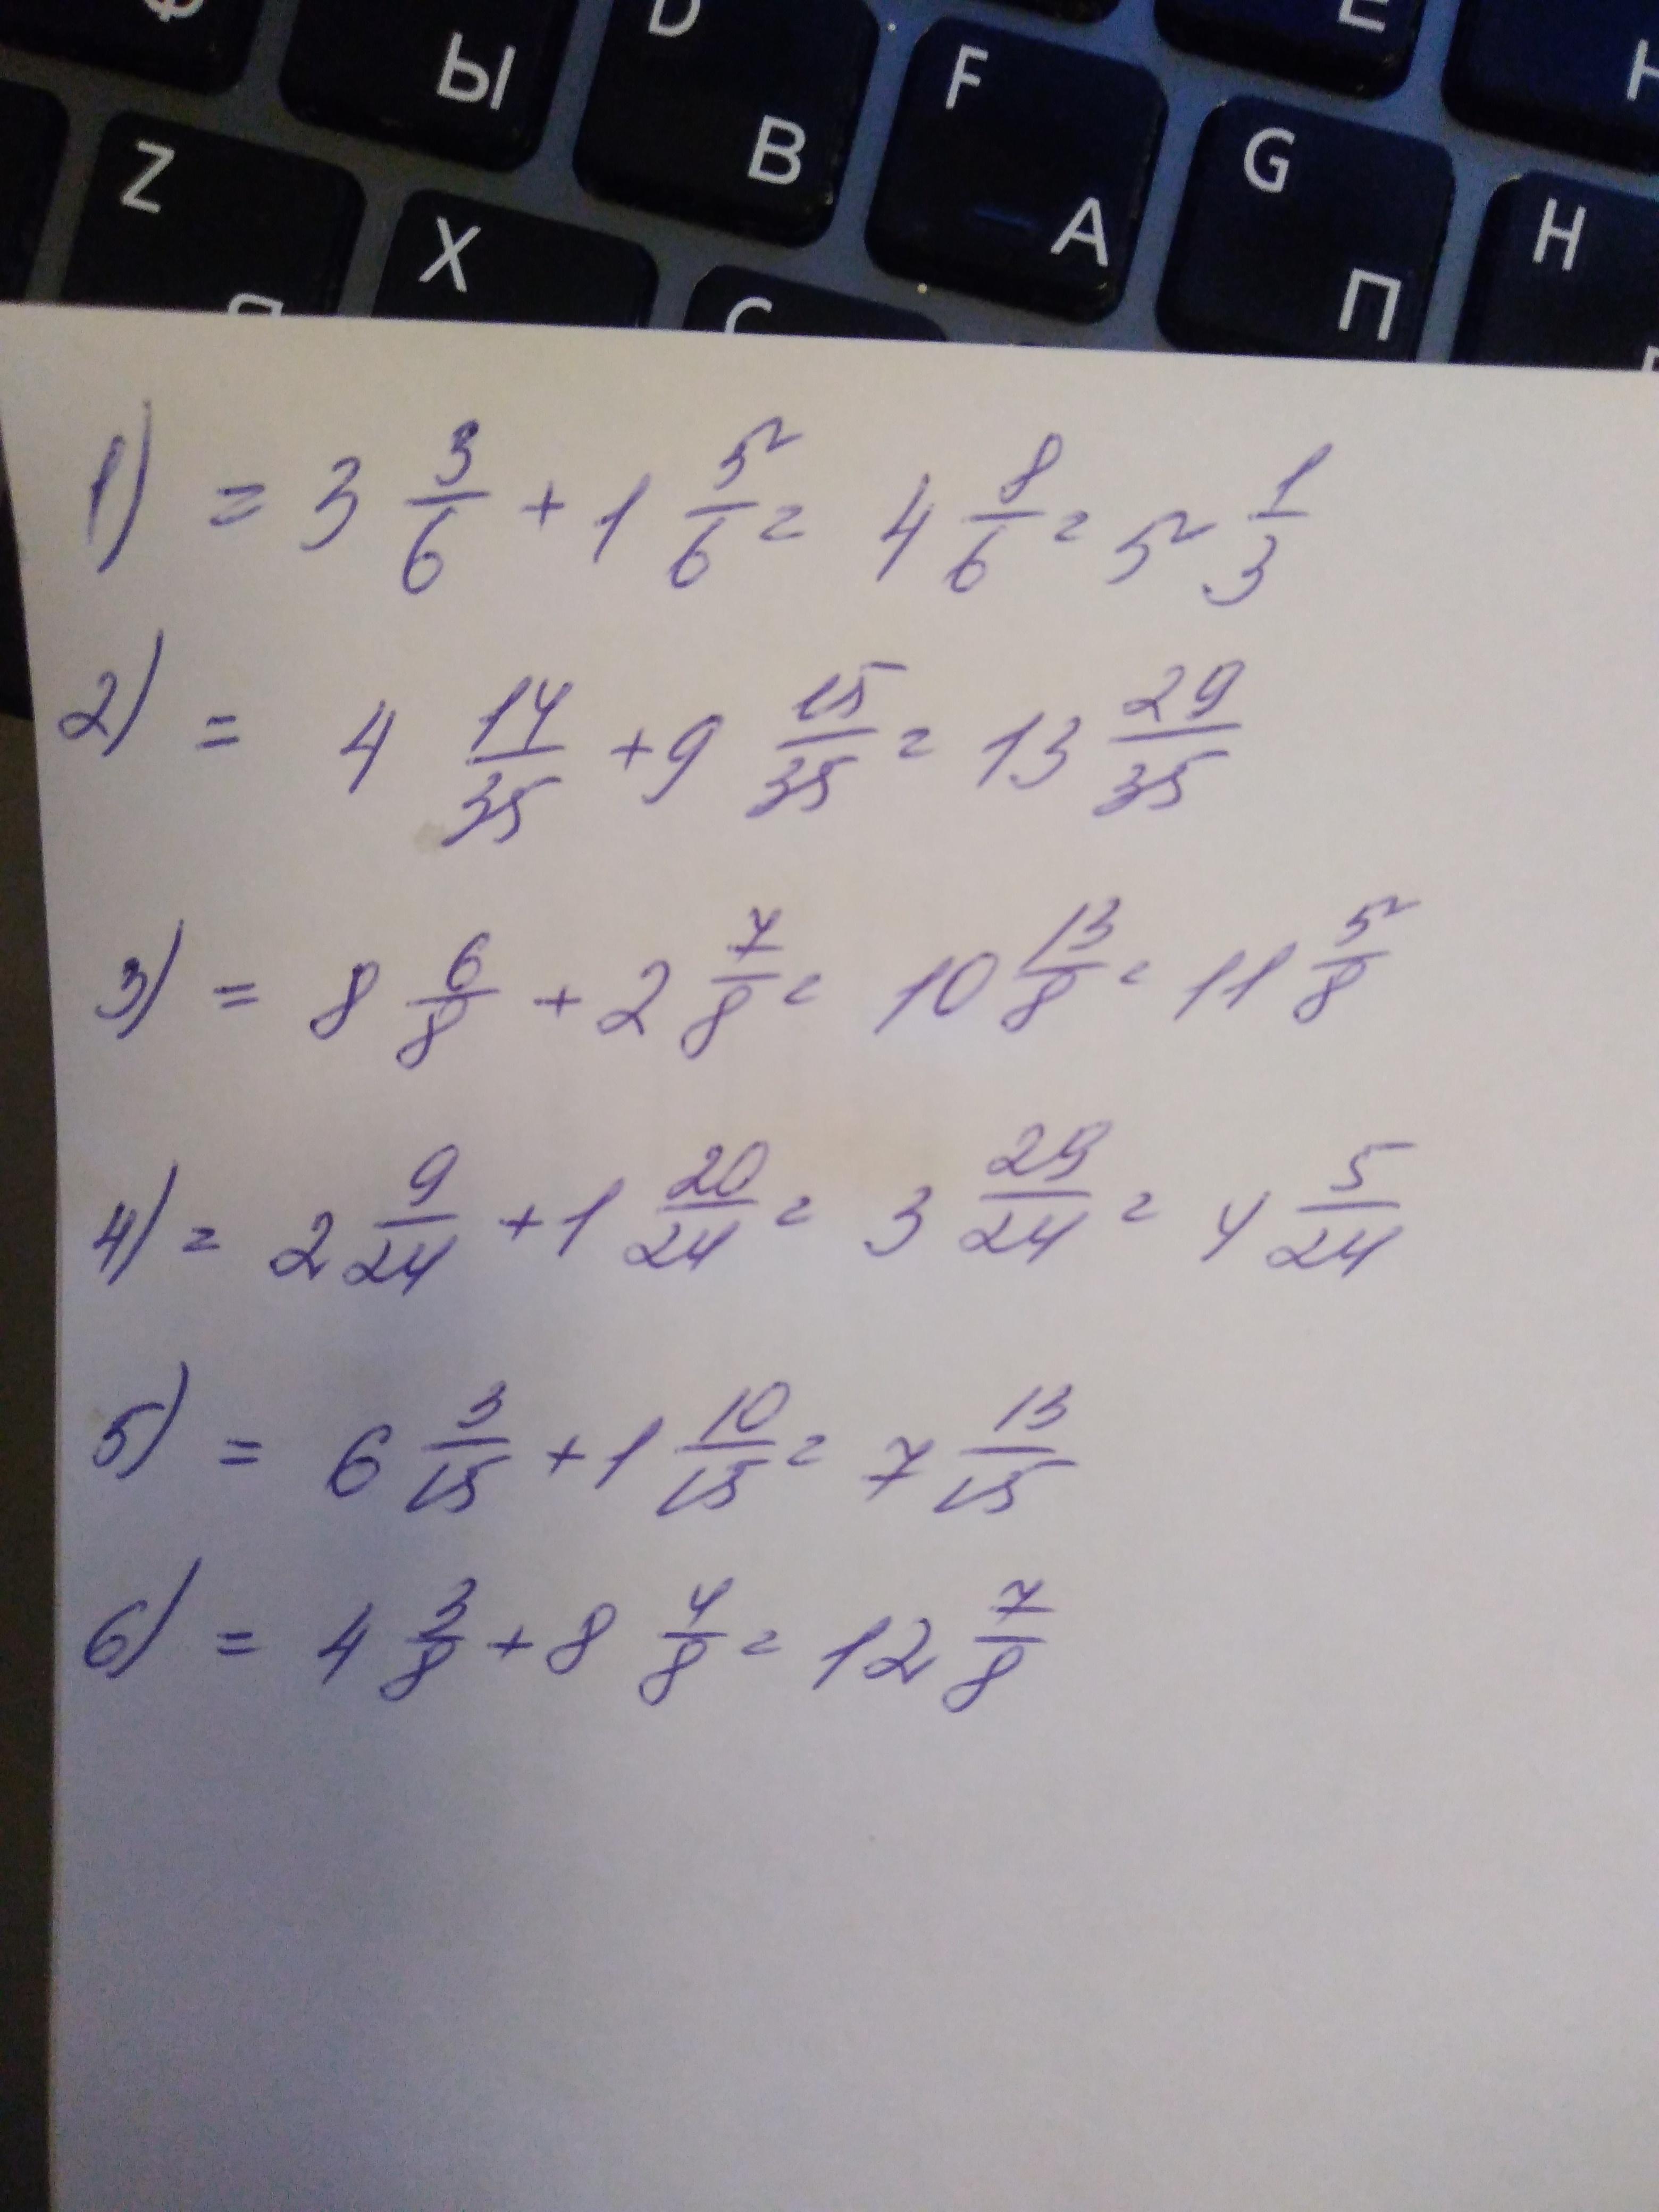 Ф Ы D В F А E G П H Н
Z Я X С
1) = 3 3/6 + 1 5/6 = 4 8/6 = 5 1/3
2) = 4 14/35 + 9 15/35 = 13 29/35
3) = 8 6/8 + 2 7/8 = 10 13/8 = 11 5/8
4) = 2 9/24 + 1 20/24 = 3 29/24 = 4 5/24
5) = 6 3/15 + 1 10/15 = 7 13/15
6) = 4 3/8 + 8 4/8 = 12 7/8